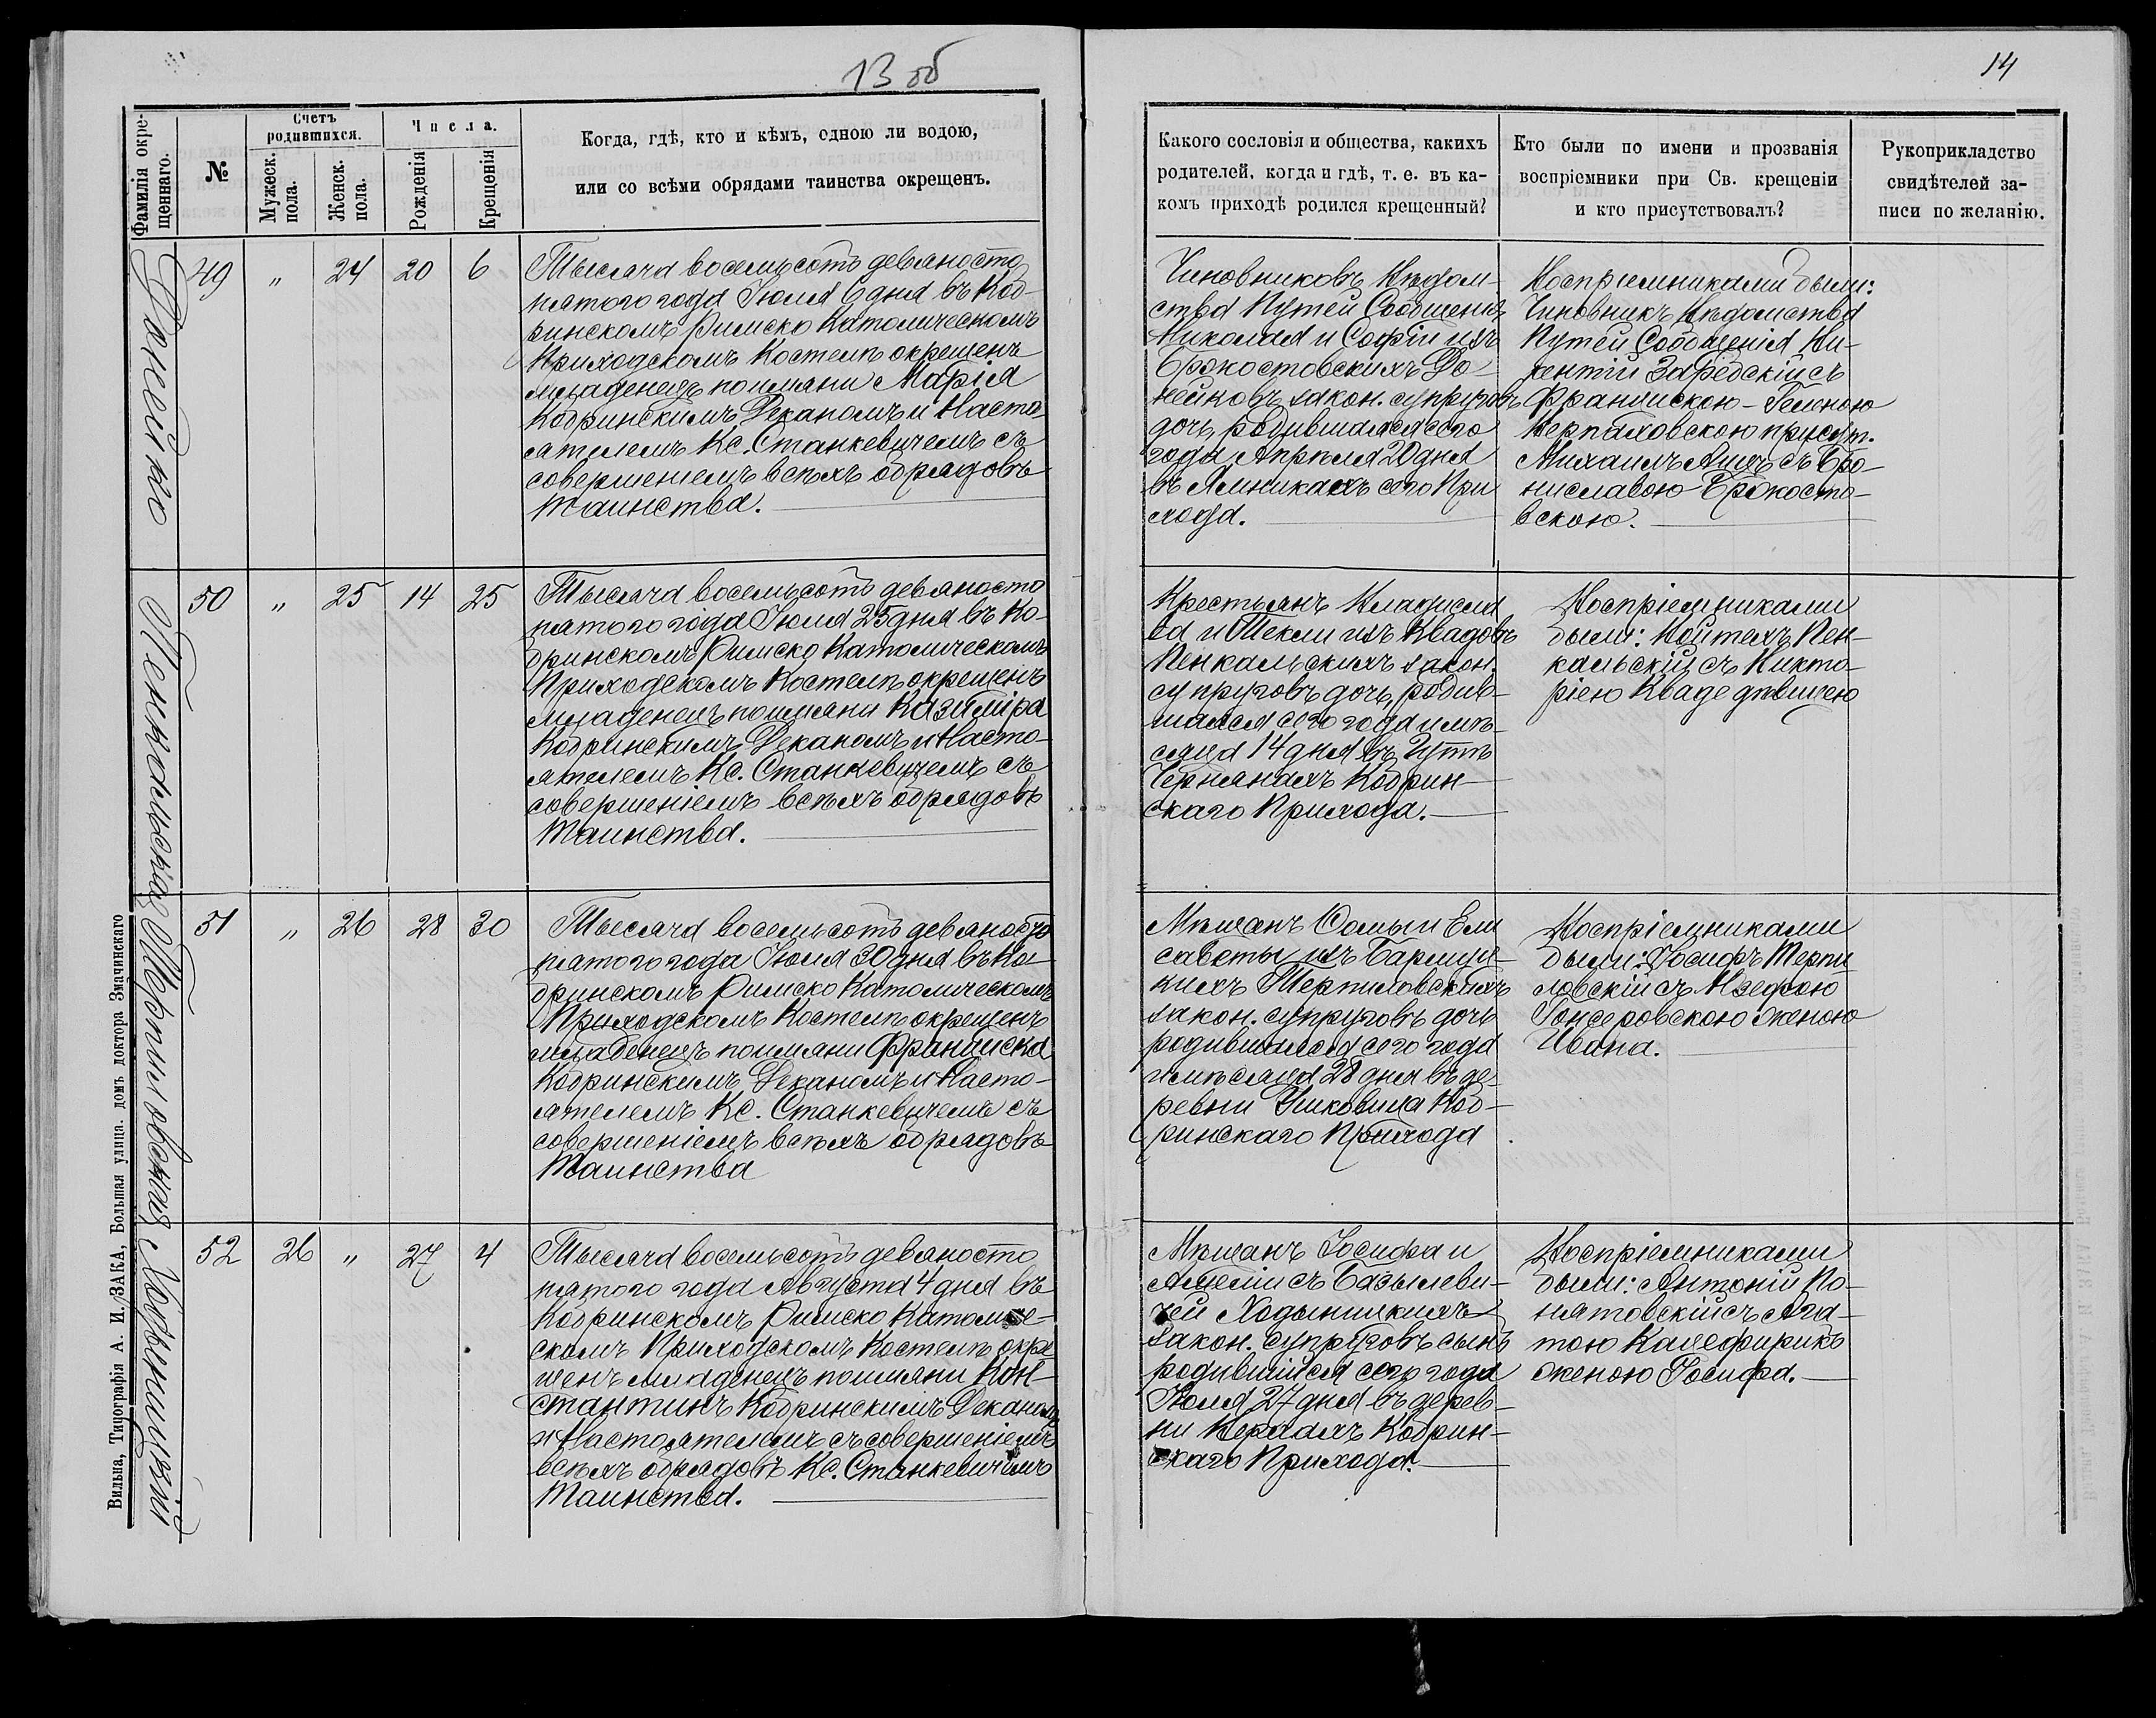 13 об
14
Фамилія окре-
щеннаго.
№
Счетъ
родившихся.
Мужеск.
пола.
Женск.
пола.
Числа.
Рожденія
Крещенія
Когда, гдѣ, кто и кѣмъ, одною ли водою,
или со всѣми обрядами таинства окрещенъ.
Какого сословія и общества, какихъ
родителей, когда и гдѣ, т. е. въ ка-
комъ приходѣ родился крещенный?
Кто были по имени и прозванія
воспріемники при Св. крещеніи
и кто присутствовалъ?
Рукоприкладство
свидѣтелей за-
писи по желанію.
Донейко
49 " 24 20 6
Тысяча восемьсотъ девяносто
пятого года Іюля 6 дня въ Коб-
ринскомъ Римско Католическомъ
Приходскомъ Костелѣ окрещенъ
младенецъ по имяни Марія
Кобринскимъ Деканомъ и Насто-
ятелемъ Кс. Станкевичемъ съ
совершеніемъ всѣхъ обрядовъ
Таинства.
Чиновниковъ Вѣдом-
ства Путей Сообщенія
Николая и Софіи изъ
Бржостовскихъ До-
нейковъ закон. супруговъ
дочь, родившаяся сего
года Апрѣля 20 дня
въ Ямникахъ сего При
хода.
Воспріемниками были:
Чиновникъ Вѣдомства
Путей Сообщенія Ви-
кентій Зарѣдскій съ
Францискою-Геленою
Верпаховскою присут.
Михаилъ Ашъ съ Бро-
ниславою Бржосто-
вскою.
Пенкальская
50 " 25 14 25
Тысяча восемьсотъ девяносто
пятого года Іюля 25 дня въ Ко-
бринскомъ Римско Католическомъ
Приходскомъ Костелѣ окрещенъ
младенецъ по имяни Казиміра
Кобринскимъ Деканомъ и Насто-
ятелемъ Кс. Станкевичемъ съ
совершеніемъ всѣхъ обрядовъ
Таинства.
Крестьянъ Владисла
ва и Текли изъ Квадовъ
Пенкальскихъ закон.
супруговъ дочь, родив-
шаяся сего года и мѣ-
сяца 14 дня въ Гутѣ
Чернянахъ Кобрин-
скаго Прихода.
Воспріемниками
были: Войтехъ Пен-
кальскій съ Викто-
ріею Кваде дѣвицею
Терпиловская
51 " 26 28 30
Тысяча восемьсотъ девяносто
пятого года Іюля 30 дня въ Ко-
бринскомъ Римско Католическомъ
Приходскомъ Костелѣ окрещенъ
младенецъ по имяни Франциска
Кобринскимъ Деканомъ и Насто-
ятелемъ Кс. Станкевичемъ съ
совершеніемъ всѣхъ обрядовъ
Таинства
Мѣщанъ Ѳомы и Ели
саветы изъ
Терпиловскихъ
закон. супруговъ дочь
родившаяся сего года
и мѣсяца 28 дня въ де-
ревни Коб-
ринскаго Прихода
Воспріемниками
были: Іосифъ Терпи
ловскій съ Юзефою
Гонсеровскою женою
Ивана.
Ходыницкій
52 26 " 27 4
Тысяча восемьсотъ девяносто
пятого года Августа 4 дня въ
Кобринскомъ Римско Католиче-
скомъ Приходскомъ Костелѣ окре
щенъ младенецъ по имяни Кон-
стантинъ Кобринскимъ Деканомъ
и Настоятелемъ съ совершеніемъ
всѣхъ обрядовъ Кс. Станкевичемъ
Таинства.
Мѣщанъ Іосифа и
Амеліи съ Базылеви-
чей Ходыницкихъ
закон. супруговъ сынъ
родившійся сего года
Іюля 27 дня въ дерев-
ни Кобрин-
скаго Прихода.
Воспріемниками
были: Антоній По-
нятовскій съ Ага-
тою
женою Іосифа.
Вильна, Типографія А. И. ЗАКА, Большая улица. домъ доктора Змачинскаго